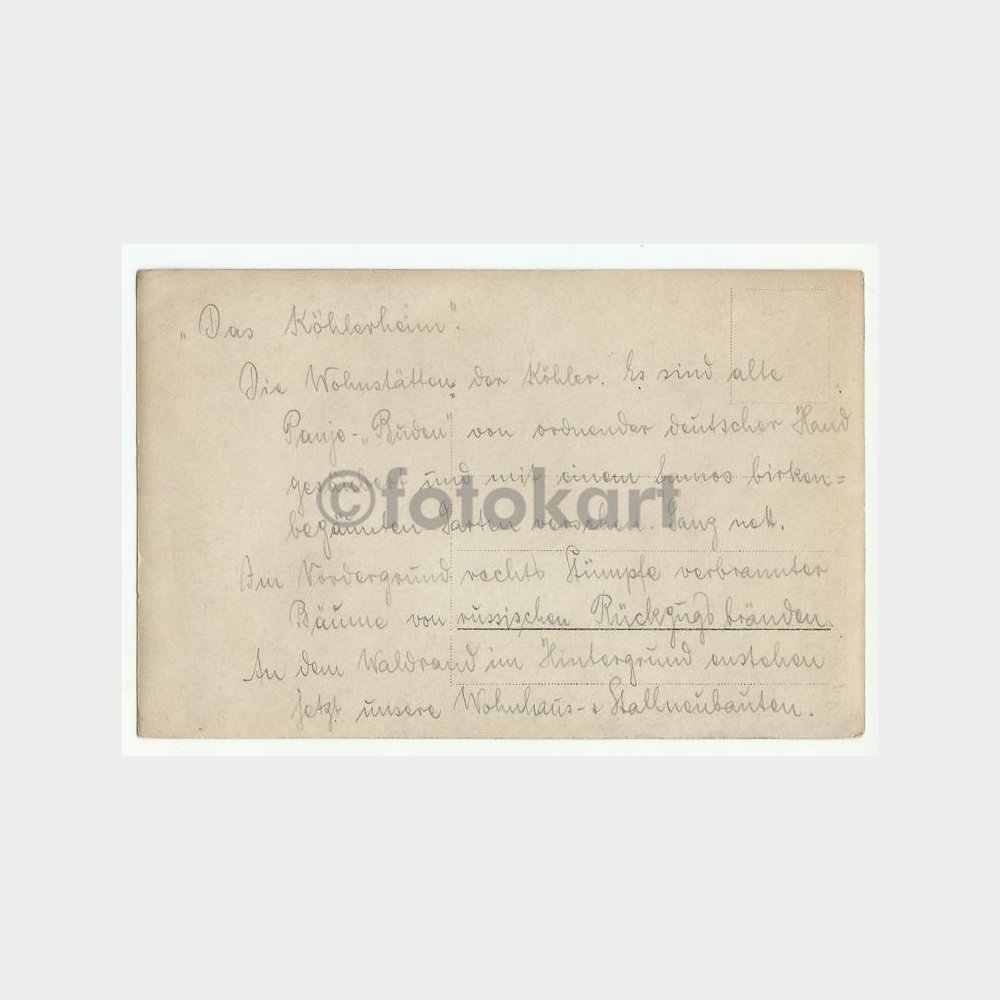 „Das Köhlerheim".
Die Wohnstätten der Köhler. Es sind alte
Panje-„Buden" von ordnender deutscher Hand
gesäubert und mit einem famos birken=
begäumten Garten versehen. Ganz nett.
Im Vordergrund rechts Stümpfe verbrannter
Bäume von russischen Rückzugsbränden.
An dem Waldrand im Hintergrund enstehen
jetzt unsere Wohnhaus- & Stallneubauten.
©fotokart